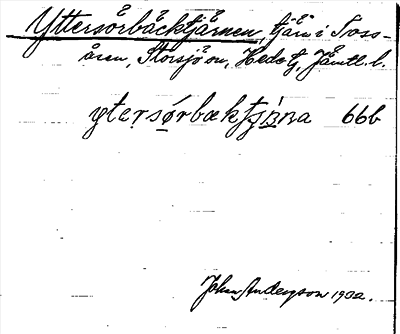 Yttersörbäcktjärnen, tjärn i Toss-
åsen, Storsjö sn, Hede tg, Jämtl. l.
ytersørbæktjɲ́na 66b
Johan Anderson 1932.